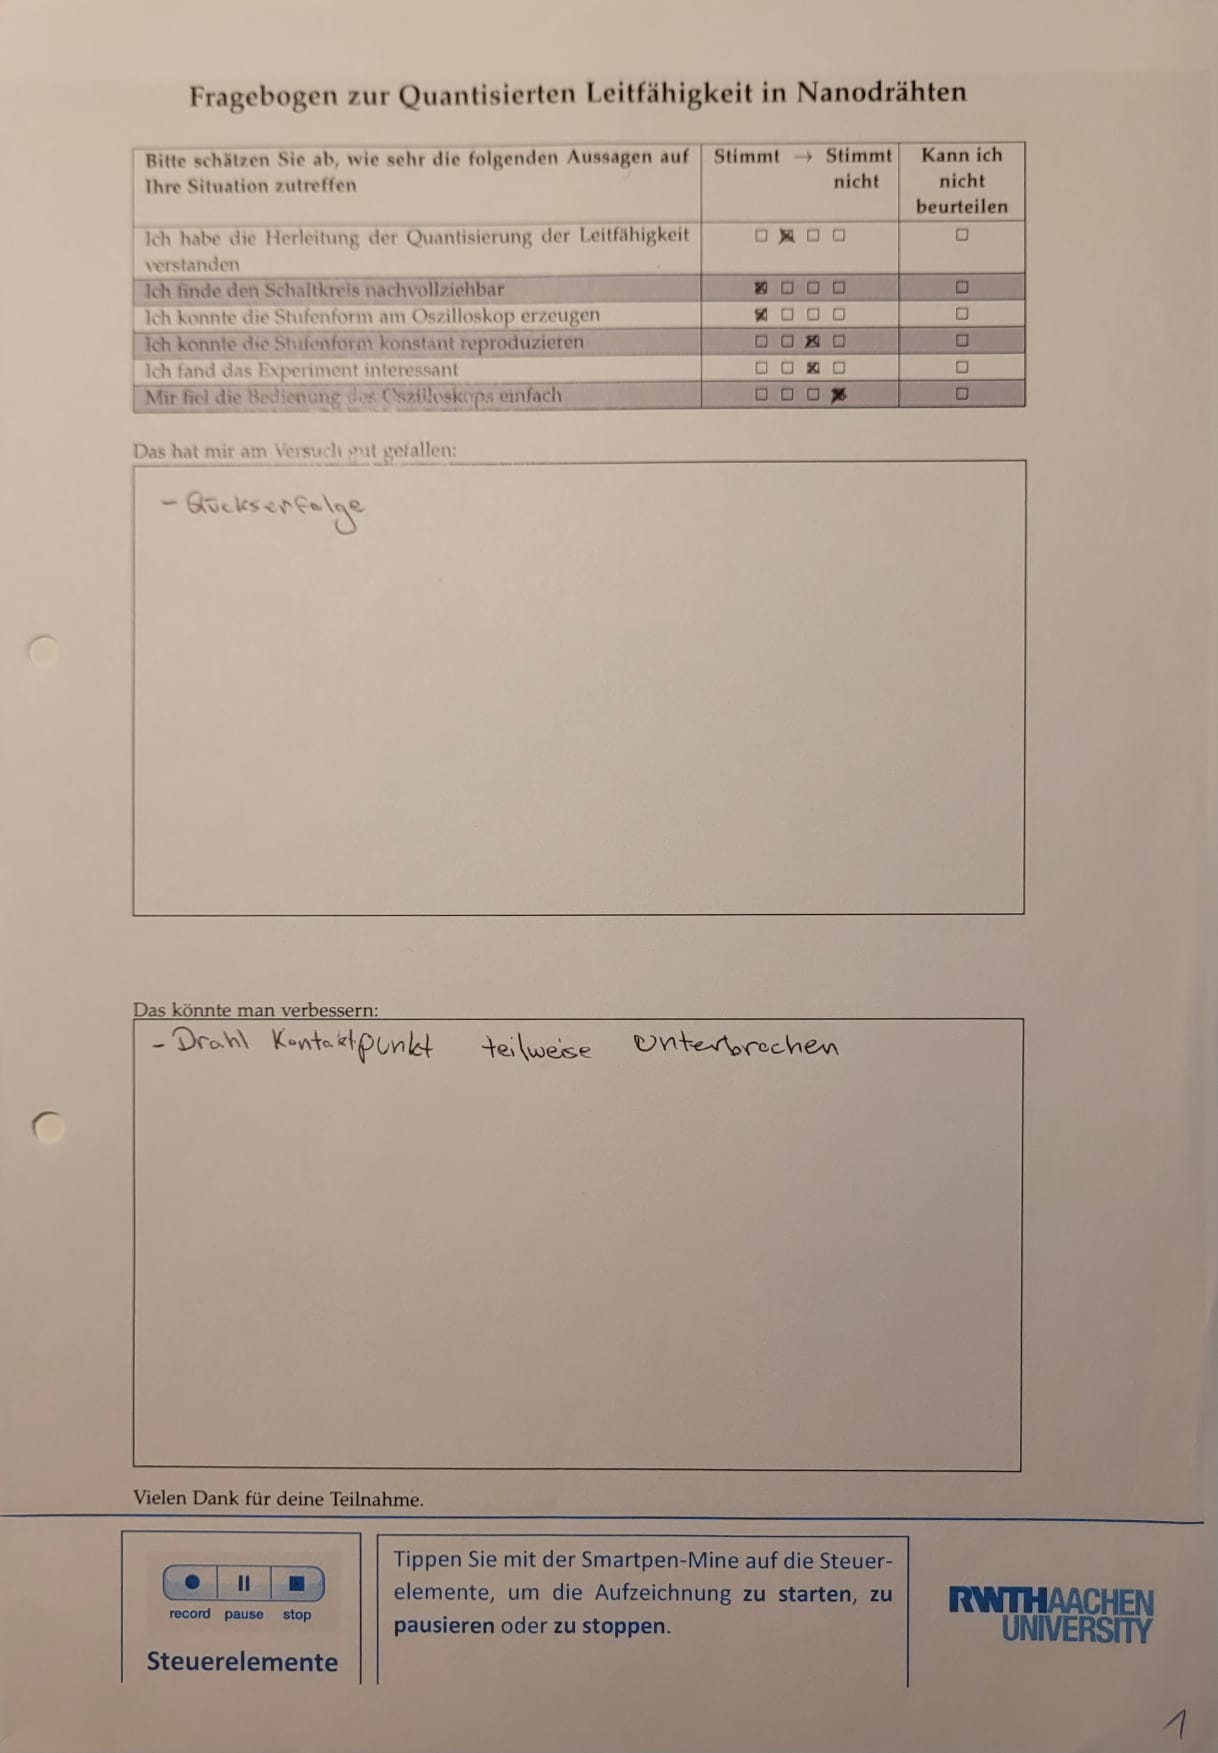 Fragebogen zur Quantisierten Leitfähigkeit in Nanodrähten
Bitte schätzen Sie ab, wie sehr die folgenden Aussagen auf
Ihre Situation zutreffen
Stimmt → Stimmt
nicht
Kann ich
nicht
beurteilen
Ich habe die Herleitung der Quantisierung der Leitfähigkeit
verstanden
☐ ☒ ☐ ☐ ☐
Ich finde den Schaltkreis nachvollziehbar ☒ ☐ ☐ ☐ ☐
Ich konnte die Stufenform am Oszilloskop erzeugen ☒ ☐ ☐ ☐ ☐
Ich konnte die Stufenform konstant reproduzieren ☐ ☐ ☒ ☐ ☐
Ich fand das Experiment interessant ☐ ☐ ☒ ☐ ☐
Mir fiel die Bedienung des Oszilloskops einfach ☐ ☐ ☐ ☒ ☐
Das hat mir am Versuch gut gefallen:
- Glückserfolge
Das könnte man verbessern:
- Draht Kontaktpunkt teilweise unterbrochen
Vielen Dank für deine Teilnahme.
record pause stop
Steuerelemente
Tippen Sie mit der Smartpen-Mine auf die Steuer-
elemente, um die Aufzeichnung zu starten, zu
pausieren oder zu stoppen.
RWTHAACHEN
UNIVERSITY
1